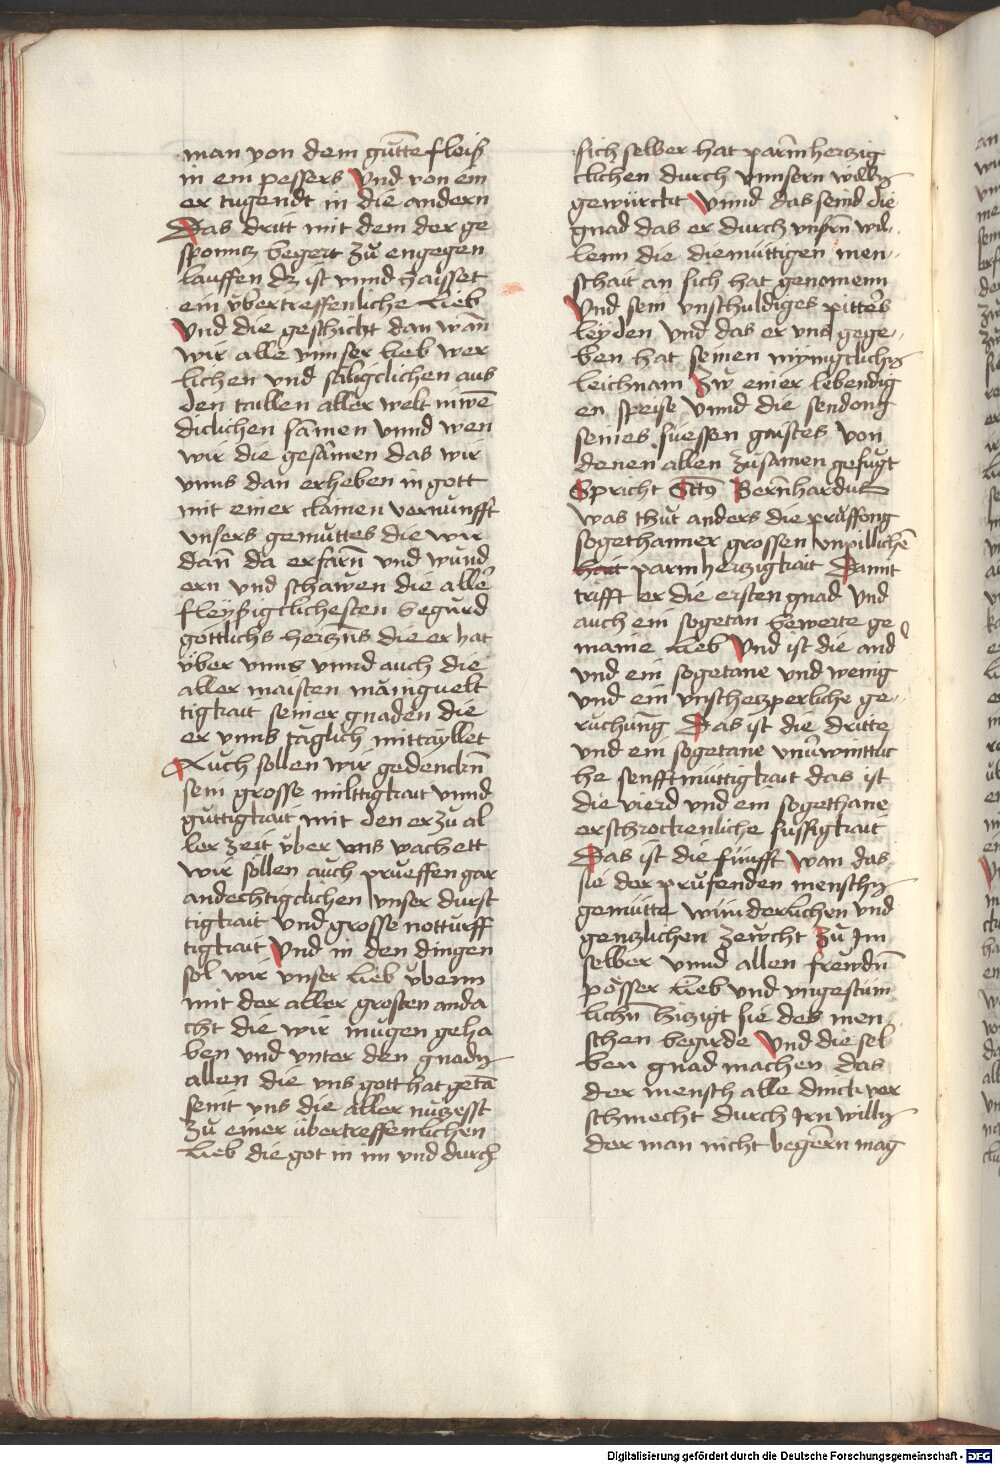 man von dem gu̇tte fleiß
in ein pessers Vnd von ein
er tugendt in die andern
Das dritt mit dem der ge
sponntz begert zu̇ engegen
lauffen dz ist vnnd haisset
ein u̇bertreffenliche Lieb
Vnd die geschicht dan wan̄
wir alle vnnser lieb wer
lichen vnd säligclichen aus
den taillen aller welt inwē
diclichen samen vnnd wen
wir die gesamen das wir
vnns dan erheben in gott
mit einer clainen vernu̇nfft
vnsers gemu̇ttes die wir
dan̄ da erfarn̄ vnd wu̇nd
ern vnd schawen die alle
fleyßigclichesten begu̇rd
göttlichs hertzn̄s die er hat
u̇ber vnns vnnd auch die
aller maisten mäinguelt
tigkait seiner gnaden die
er vnns täglich mittayllet
Auch sollen wir gedenckn̄
sein grosse milttigkait vnnd
gu̇ttigkait mit den er zu̇ al
ler zeit u̇ber vns wachett
wir söllen auch prueffen gar
andechtigclichen vnser durst
tigkait vnd grosse notturff
tigkait Vnd in den dingen
sol wir vnser Lieb u̇benn
mit der aller grosten anda
cht die wir mu̇gen geha
ben vnd vnter den gnadn
allen die vns gott hat getā
seint vns die aller nutzesst
zu̇ einer u̇bertreffenlichen
Lieb die got in im vnd durch
sich selber hat parm̄hertzig
clichen durch vnnsern willn
gewürckt Vnnd das seind die
gnad das er durch vnsrn̄ wil-
lenn die diemüttigen men-
schait an sich hat genomenn
Vnd sein vnschuldiges pitters
leyden vnd das er vns gege-
ben hat seinen mynigclichn
leichnam Zw einer lebendig
en speise Vnnd die sendong
seines su̇essen gaistes von
denen allen zu̇samen gefu̇gt
Spricht Sctus Bern̄hardus
was thu̇t anders die pru̇ffong
sogethanner grossen vnpillichē
hait parmhertzigkait Damit
trifft er die ersten gnad vnd
auch ein sogetan bewerte ge
maine Lieb Vnd ist die and
vnd ein sogetane vnd wenig
vnd ein vnschetzperliche ge-
ru̇chung Das ist die dritte
vnd ein sogetane vnu̇wintlic
he senfftmüttigkait das ist
die vierd vnd ein sogethane
erschrockenliche su̇ssigkait
Das ist die fünfft wan das
sie der pru̇fenden menschn
gemütte wünderlichen vnd
gentzlichen zewcht zu̇ Im
selber vnnd allen frewdn̄
pösser Lieb vnd vngestüm
lichn̄ hitzigt sie des men
schen begirde Vnd die sel
ben gnad machen das
der mensch alle dinck ver
schmecht durch Irn willn
der man nicht begern̄ mag
Digitalisierung gefördert durch die Deutsche Forschungsgemeinschaft - DFG